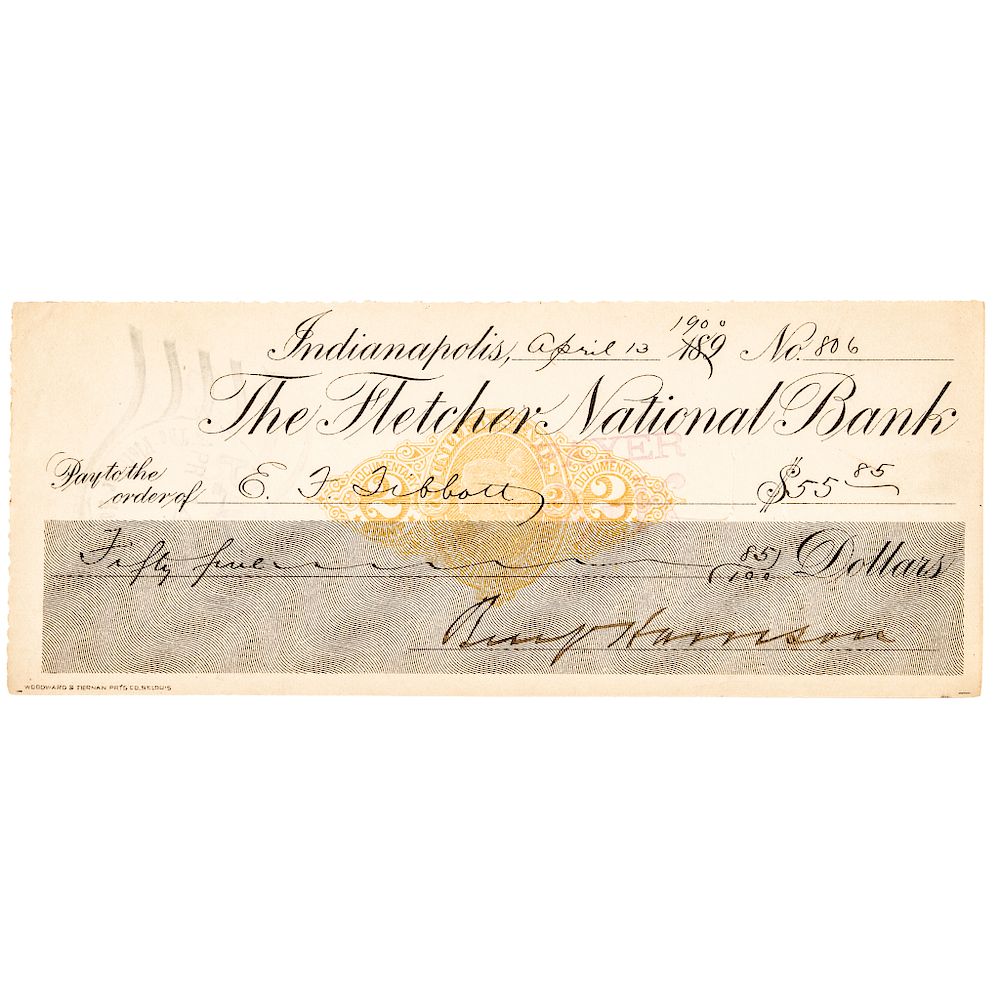 Indianapolis, April 13 1900 189 No. 806
The Fletcher National Bank
Pay to the order of E. F. Tibbott $55 85
Fifty five 85/100 Dollars
Benj Harrison
2 DOCUMENTARY UNITED STATES DOCUMENTARY 2
WOODWARD & TIERNAN PR'T'G CO. ST. LOUIS